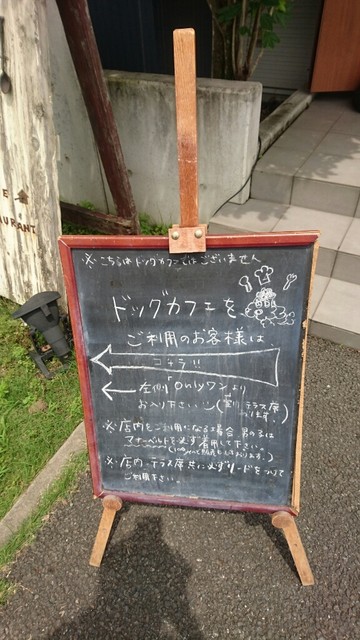 E
URANT
※こちらはドッグカフェではございません
ドッグカフェを
ご利用のお客様は、
コチラ!!
左側「Onlyワン」より
お入り下さい (室内 テラス席
います。)
※店内をご利用になる場合 男の子は
マナーベルトを必ず着用して下さい。
(100円〜で販売もしております。)
※店内・テラス席共に必ずリードをつけて
ご利用下さい。